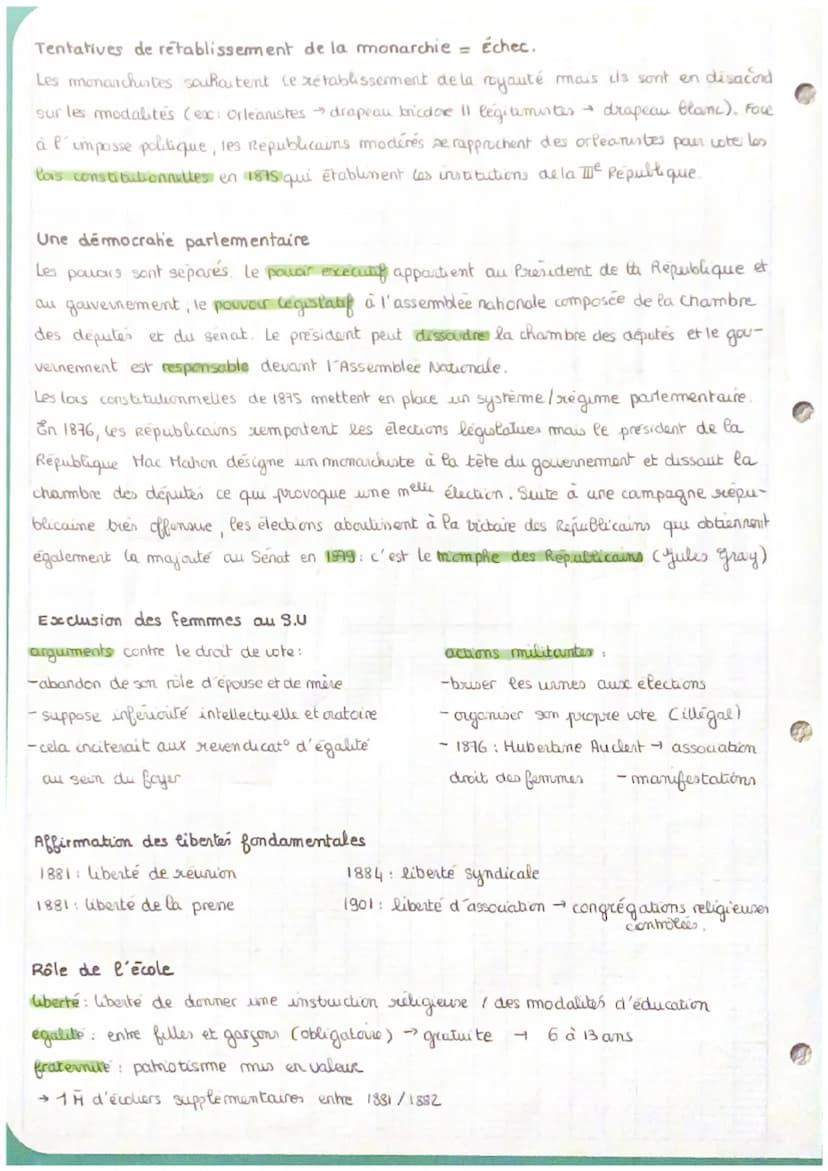 Tentatives de rétablissement de la monarchie = Échec.
Les monarchistes souhaitent le rétablissement de la royauté mais ils sont en désacord
sur les modalités (ex: Orléanistes → drapeau tricolore // légitimistes → drapeau blanc). Face
à l'impasse politique, les Républicains modérés se rapprochent des orléanistes pour voter les
lois constitutionnelles en 1875 qui établissent les institutions de la IIIe République.
Une démocratie parlementaire
Les pouvoirs sont séparés. Le pouvoir exécutif appartient au Président de la République et
au gouvernement, le pouvoir législatif à l'assemblée nationale composée de la Chambre
des députés et du sénat. Le président peut dissoudre la chambre des députés et le gou-
vernement est responsable devant l'Assemblée Nationale.
Les lois constitutionnelles de 1875 mettent en place un système/régime parlementaire.
En 1876, les Républicains remportent les élections législatives mais le président de la
République Mac Mahon désigne un monarchiste à la tête du gouvernement et dissout la
chambre des députés ce qui provoque une nelle élection. Suite à une campagne répu-
blicaine très offensive, les élections aboutissent à la victoire des Républicains qui obtiennent
également la majorité au Sénat en 1879: c'est le triomphe des Républicains (Jules Gray)
Exclusion des femmes au S.U
arguments contre le droit de vote:
-abandon de son rôle d'épouse et de mère
- suppose infériorité intellectuelle et oratoire
- cela inciterait aux revendicat° d'égalité
au sein du foyer
actions militantes :
-briser les urnes aux élections
- organiser son propre vote (illégal)
- 1876 : Hubertine Auclert → association
droit des femmes - manifestations
Affirmation des libertés fondamentales
1881: liberté de réunion
1881: liberté de la presse
1884: liberté syndicale
1901: liberté d'association → congrégations religieuses
contrôlées.
Rôle de l'école
liberté: liberté de donner une instruction religieuse / des modalités d'éducation
égalité : entre filles et garçons (obligatoire) → gratuite → 6 à 13 ans
fraternité : patriotisme mis en valeur
→ 1M d'écoliers supplémentaires entre 1881/1882